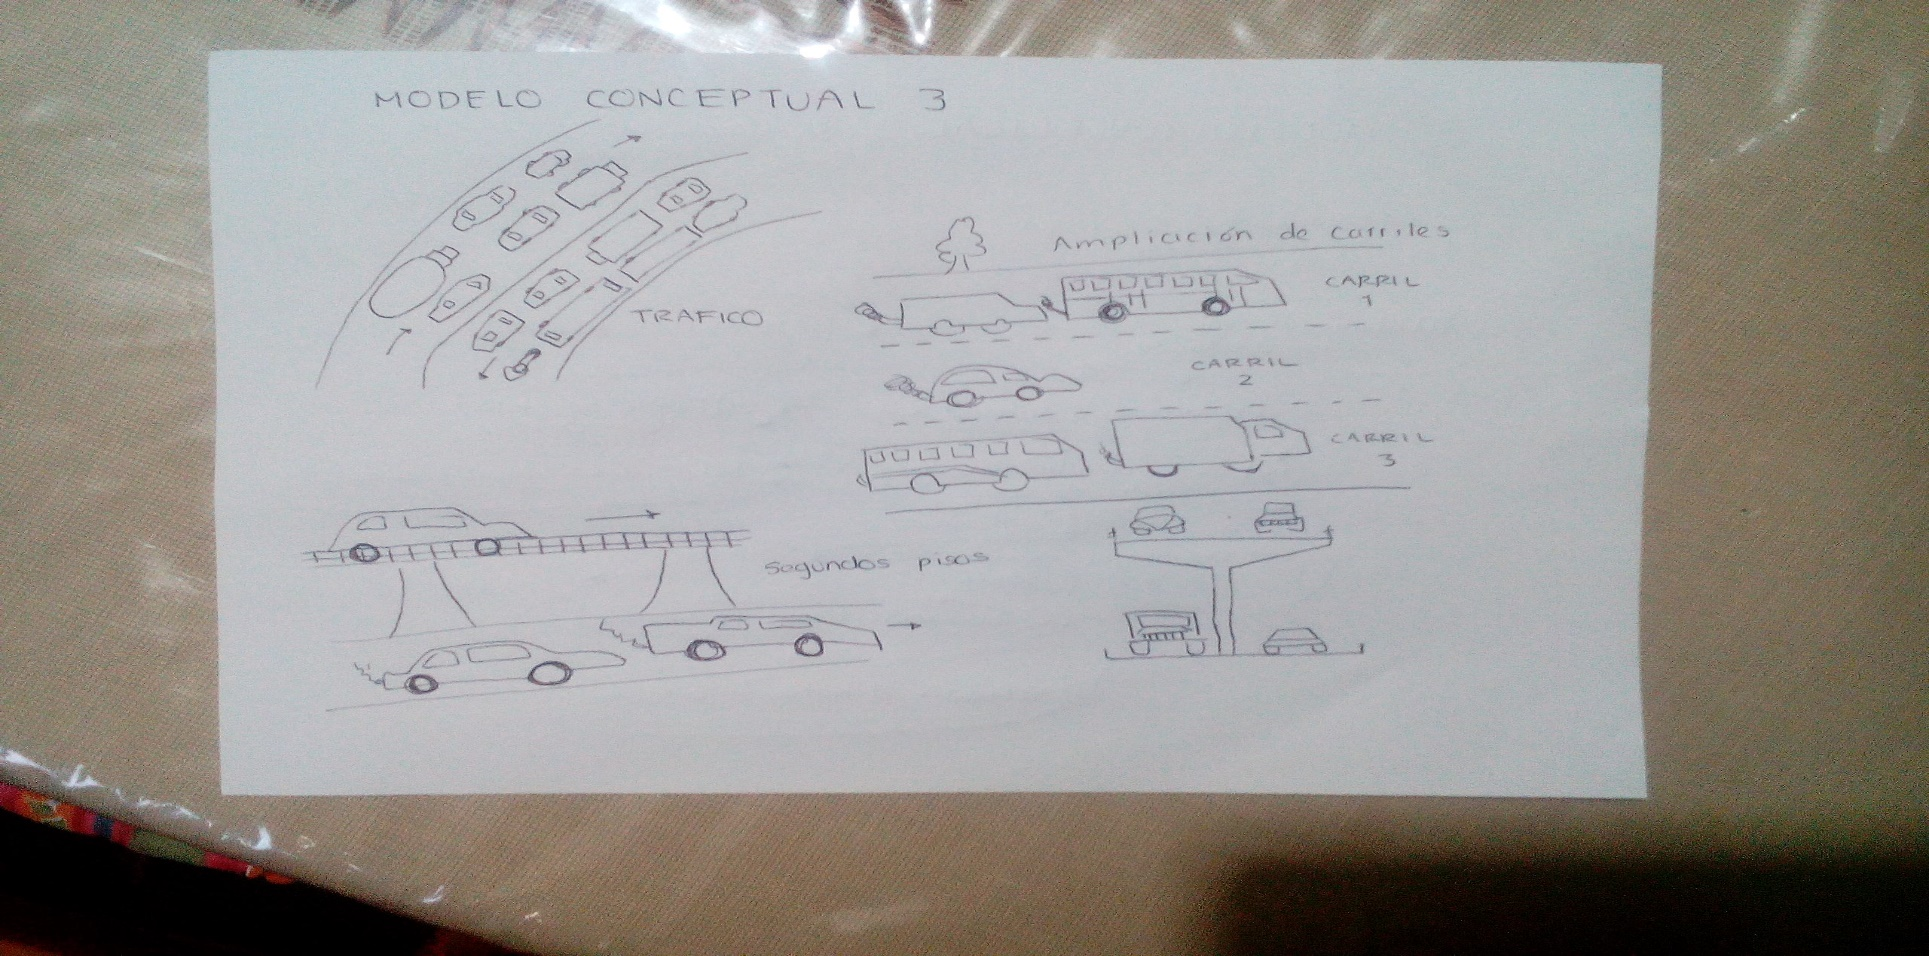 MODELO CONCEPTUAL 3
TRAFICO
Ampliación de carriles
CARRIL
1
CARRIL
2
CARRIL
3
Segundos pisos